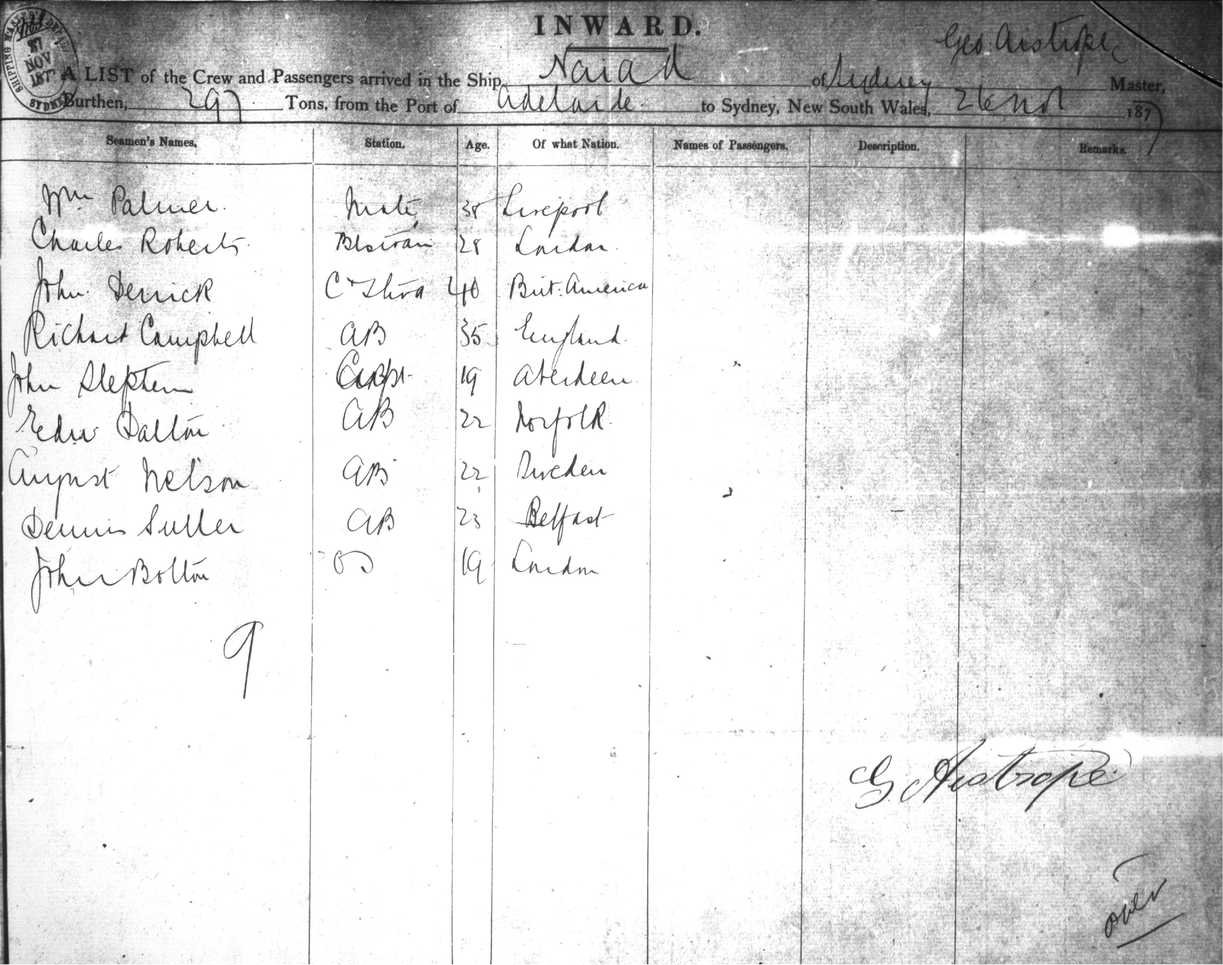 INWARD.
SHIPPING MASTER'S
27 NOV 187
SYDNEY
Geo. Aistrope
A LIST of the Crew and Passengers arrived in the Ship Naiad of Sydney Master,
Burthen, 297 Tons, from the Port of Adelaide to Sydney, New South Wales, 26 Nov 1877
Seamen's Names, Station. Age. Of what Nation. Names of Passengers. Description. Remarks.
Wm Palmer Mate 38 Liverpool
Charles Roberts 28 London
John Derrick 40 Brit. America
Richard Campbell AB 35 England
John Stephen 19 Aberdeen
Edw Dalton AB 22 Norfolk
August Nelson AB 22 Sweden
Dennis Suller AB 23 Belfast
John Bolton OS 19 London
9
G. Aistrope
over